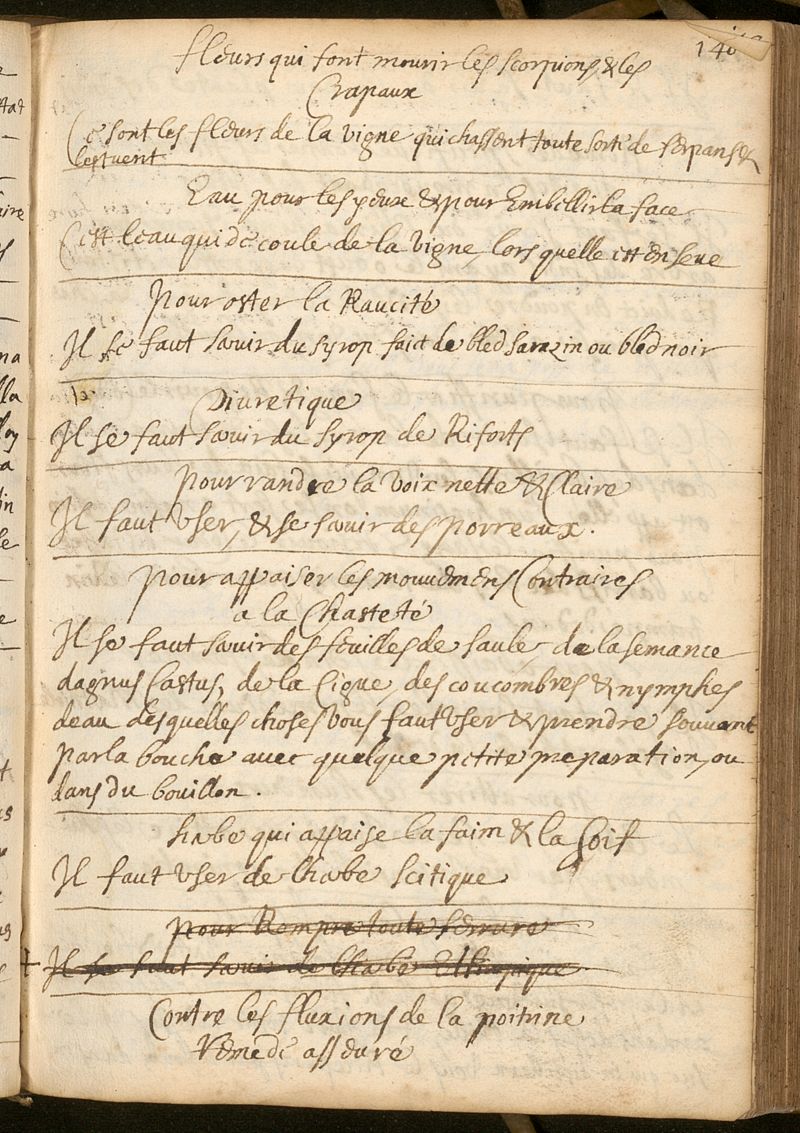 fleurs qui font mourir les scorpions, & les
Crapaux
Ce sont les fleurs de la vigne qui chassent toute sorte de serpans &
les tuent
Eau pour les yeux & pour Embellir la face
C'est leau qui decoule de la vigne, lors quelle est en seue
pour oster la Raucité
Il se faut seruir du syrop faict de bled sarazin ou bled noir
Diuretique
Il se faut seruir du syrop de Riforts
pour randre la voix nette & Claire
Il faut vser, & se seruir des porreaux.
pour appaiser les mouuemens Contraires
a la Chasteté
Il se faut seruir des feuilles de saule, de la semance
dagnus Castus, de la Cigue, des coucombres & nymphes
deau desquelles choses vous faut vser & prendre souuent
par la bouche auec quelque petite preparation, ou
dans du bouillon.
herbe qui appaise la faim & la soif
Il faut vser de lherbe scitique
pour Rompre toute serrure
Il se faut seruir de lherbe Ethiopique
Contre les fluxions de la poitrine
Remede asseuré